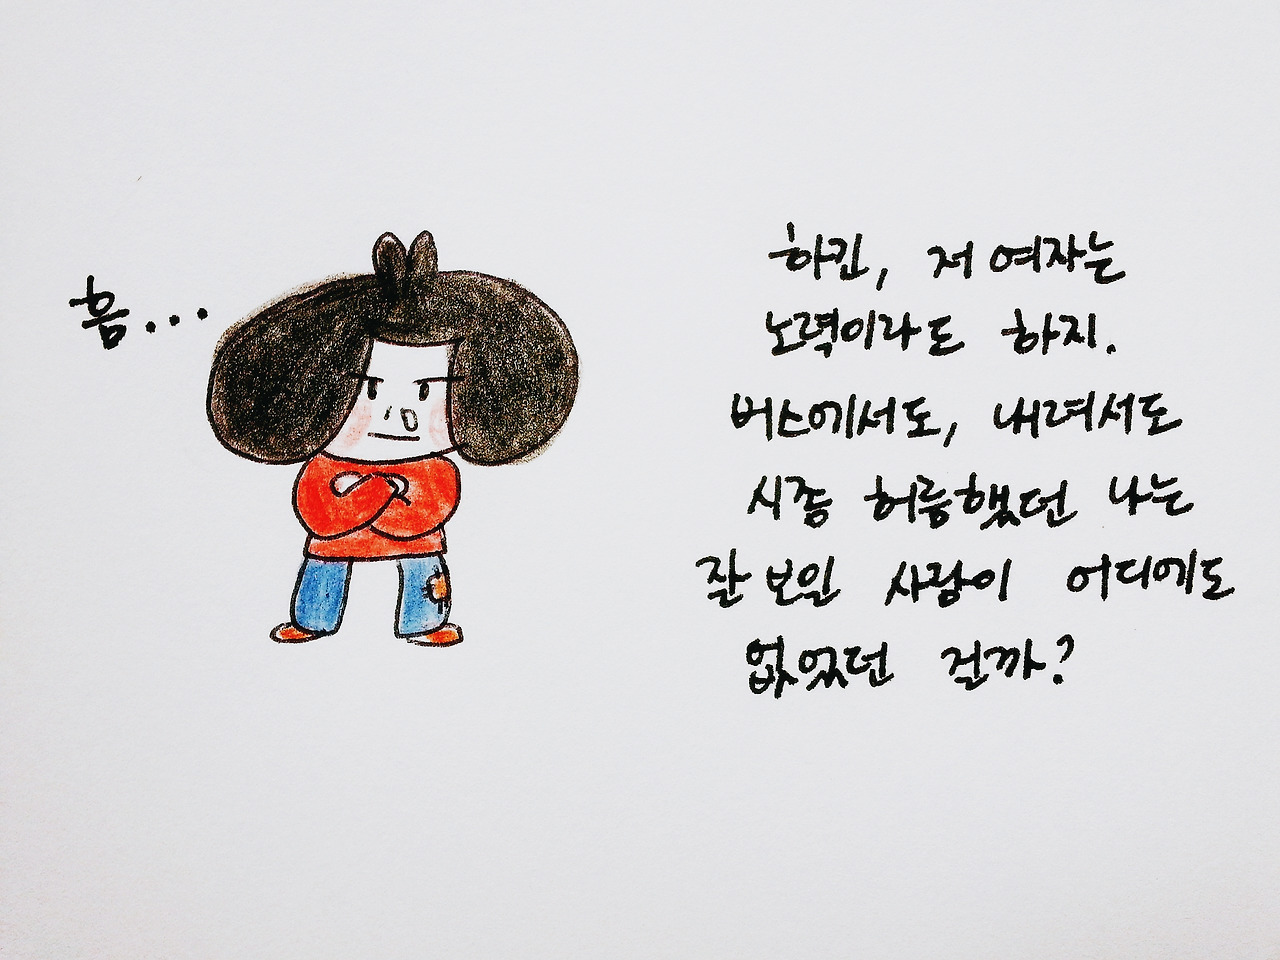 흠...
하긴, 저 여자는
노력이라도 하지.
버스에서도, 내려서도
시종 허름했던 나는
잘 보일 사람이 어디에도
없었던 걸까?